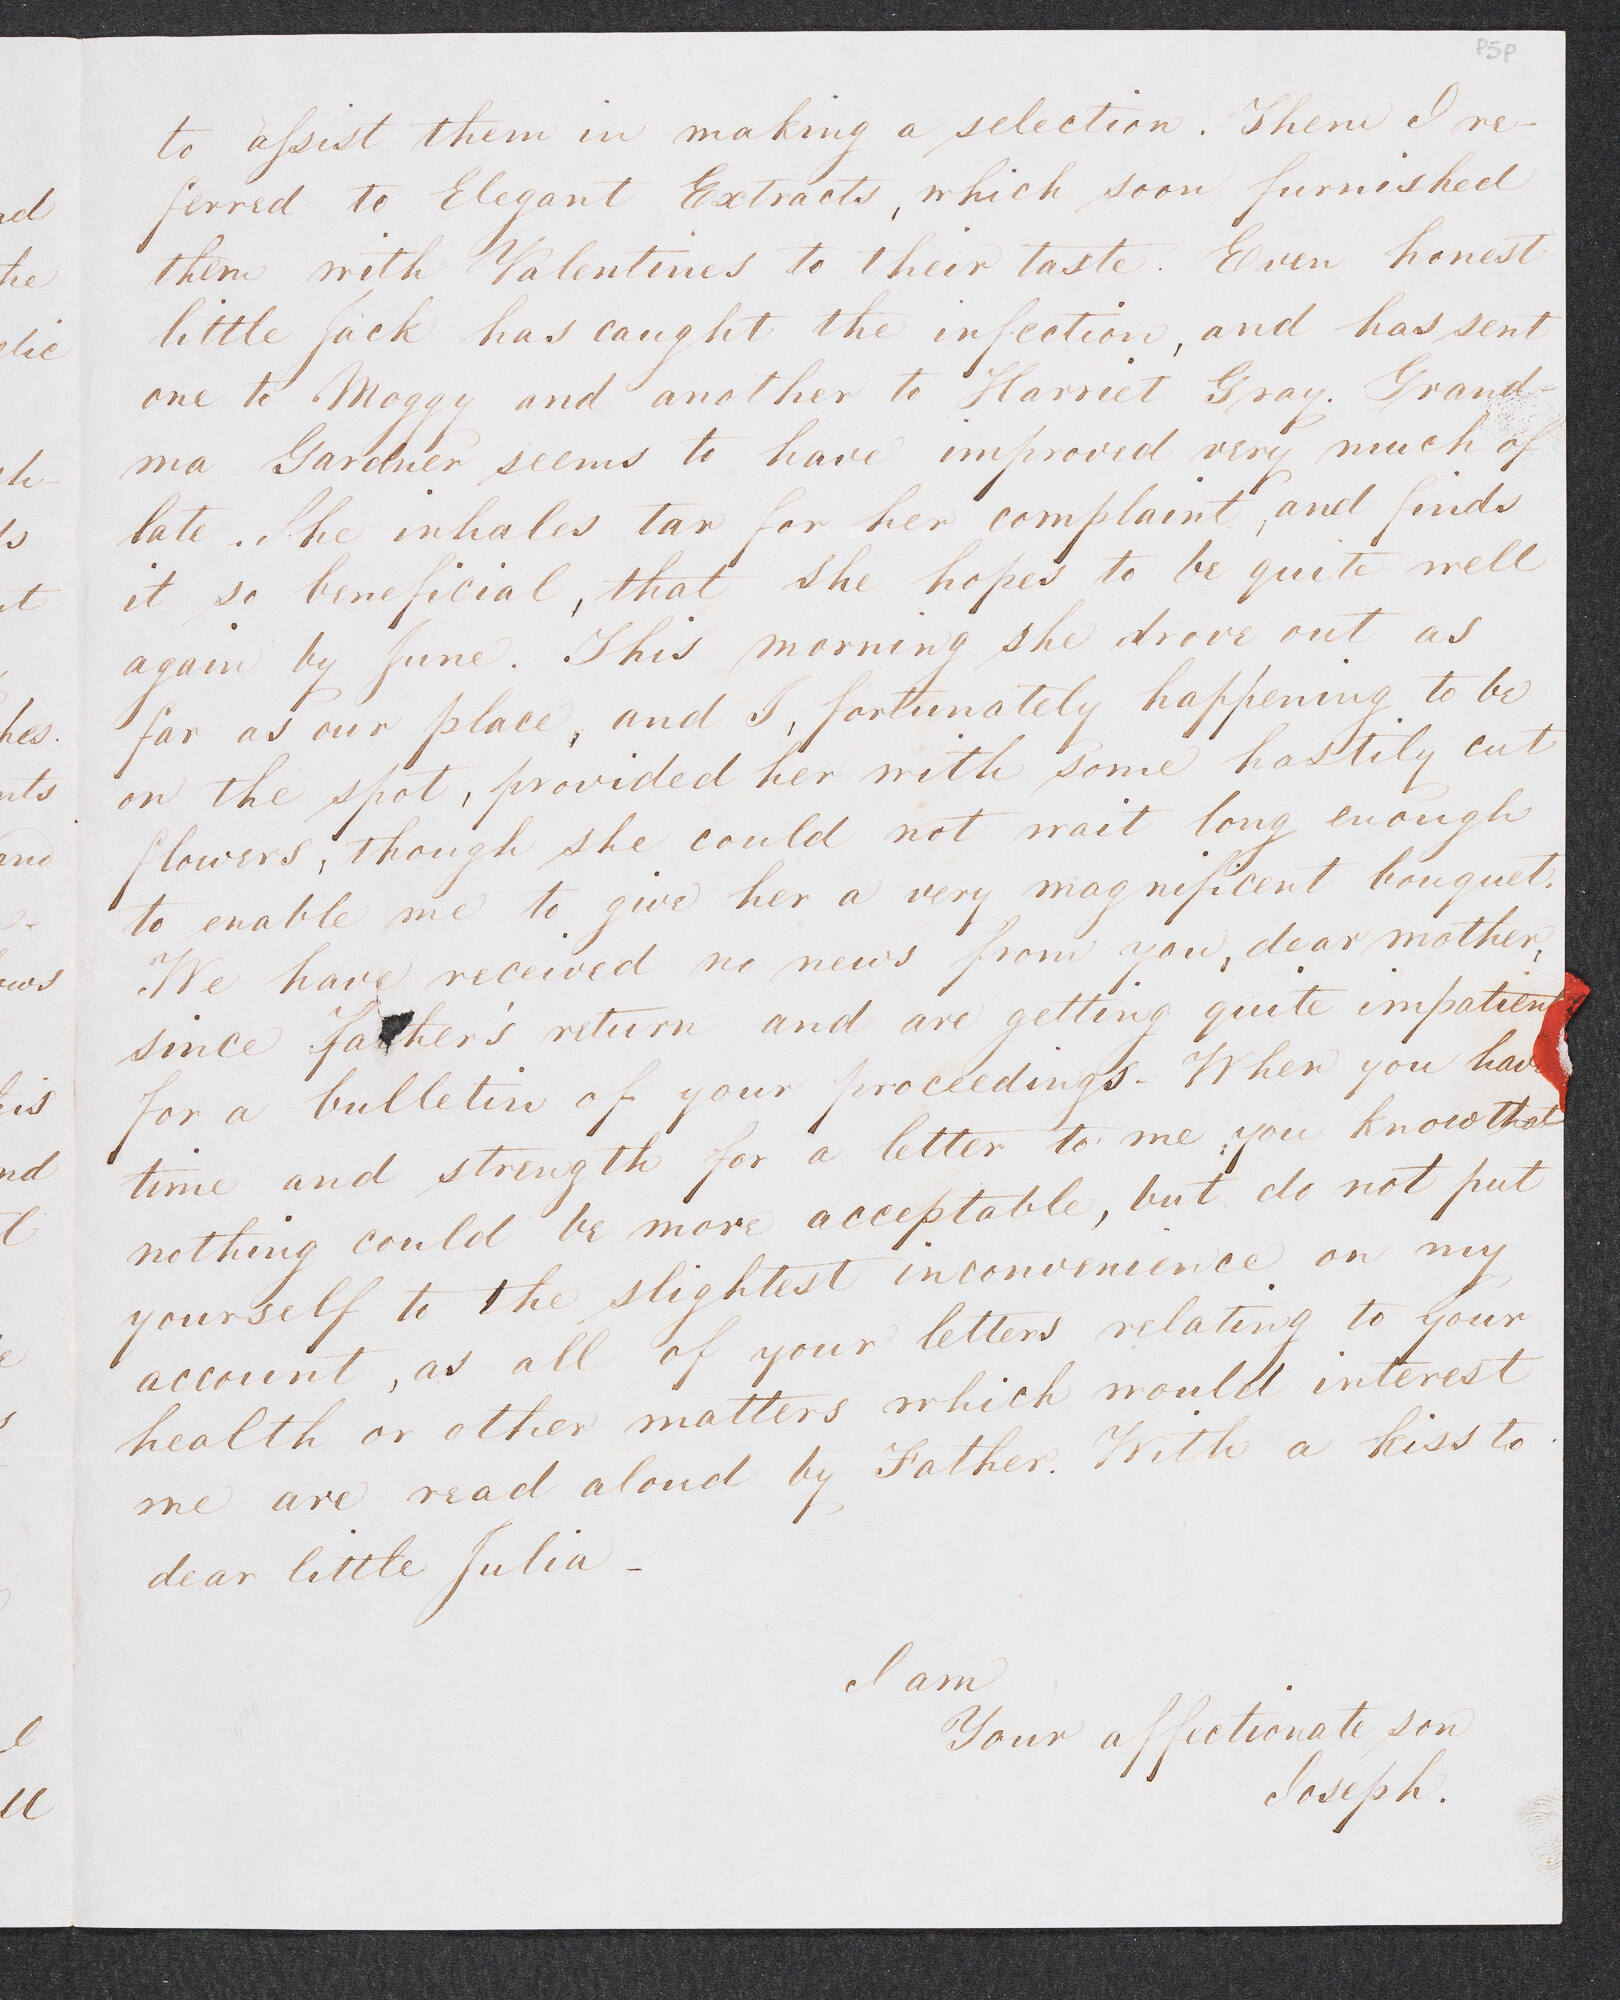 P5P
to assist them in making a selection. Them I re-
ferred to Elegant Extracts, which soon furnished
them with Valentines to their taste. Even honest
little Jack has caught the infection, and has sent
one to Moggy and another to Harriet Gray. Grand-
ma Gardner seems to have improved very much of
late. She inhales tar for her complaint, and finds
it so beneficial, that she hopes to be quite well
again by June. This morning she drove out as
far as our place, and I, fortunately happening to be
on the spot, provided her with some hastily cut
flowers, though she could not wait long enough
to enable me to give her a very magnificent bouquet.
We have received no news from you, dear mother,
since Father's return and are getting quite impatien
for a bulletin of your proceedings- When you hav
time and strength for a letter to me, you know that
nothing could be more acceptable, but do not put
yourself to the slightest inconvenience on my
account, as all of your letters relating to your
health or other matters which would interest
me are read aloud by Father. With a kiss to
dear little Julia-
I am
Your affectionate son
Joseph.